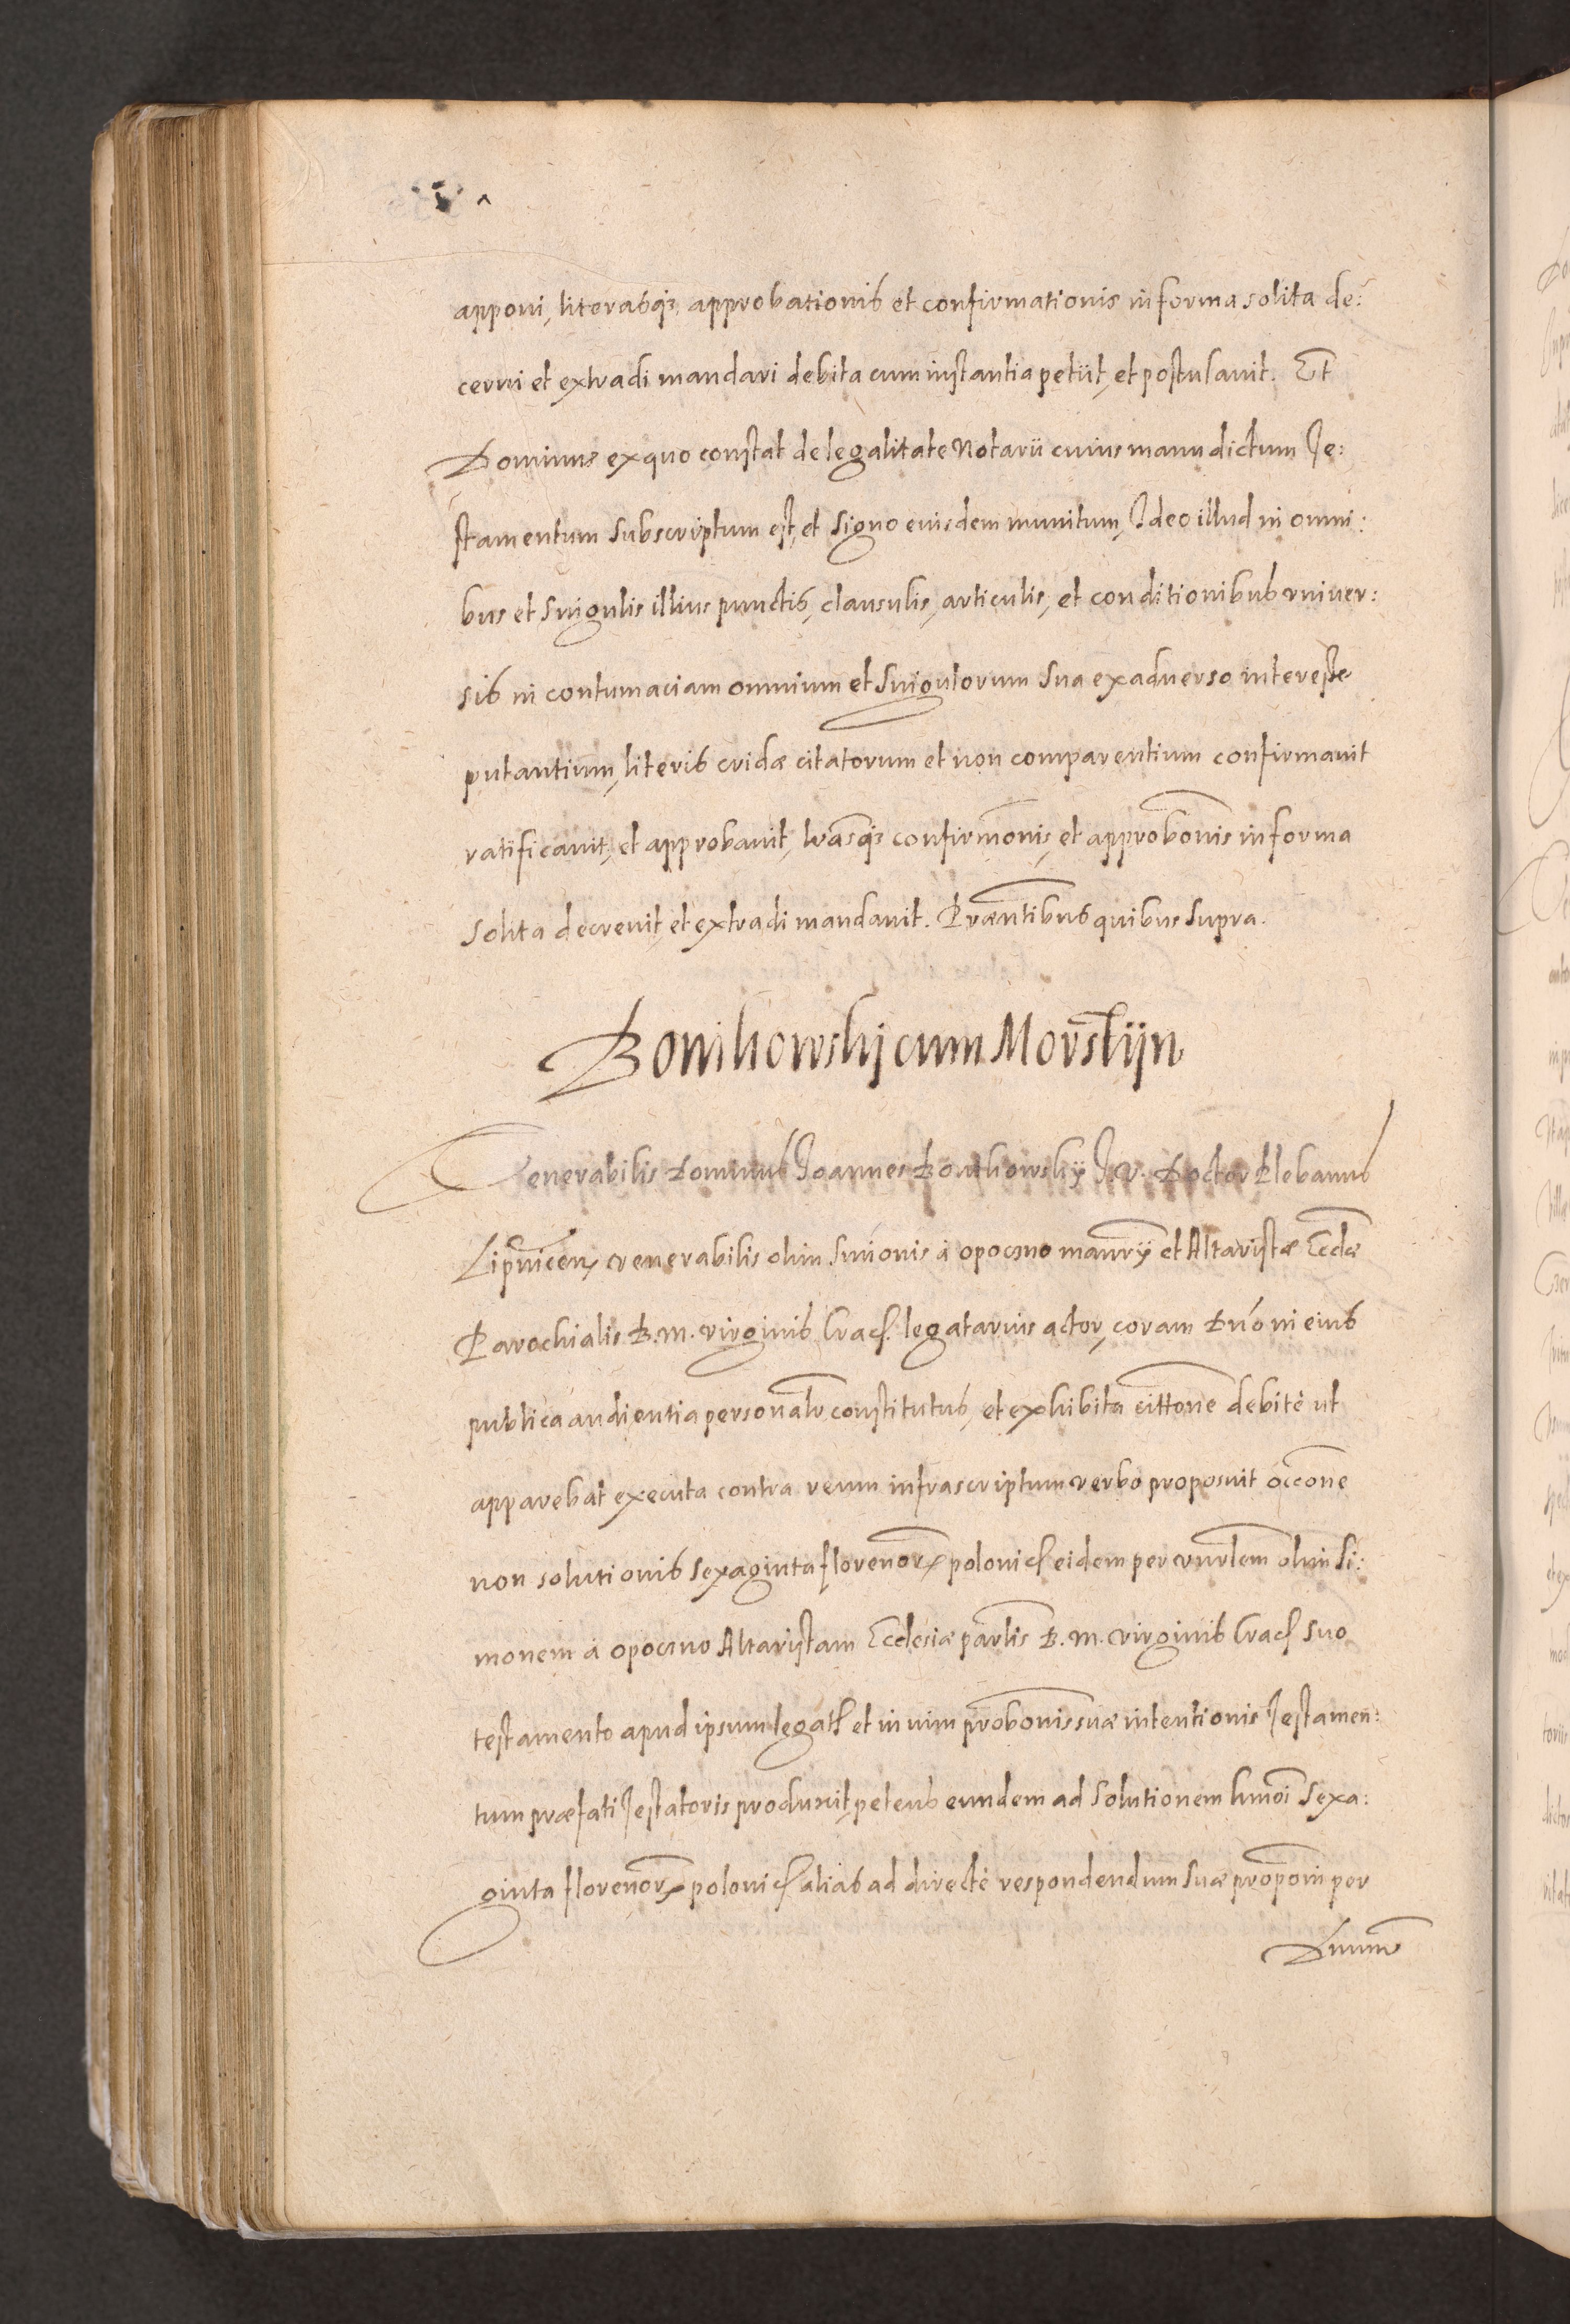 apponi, literasq₃ approbationis et confirmationis in forma solita de:
cerni et extradi mandari debita cum instantia petiit, et postulauit. Et
Dominus ex quo constat de legalitate Notarii cuius manu dictum Te:
stamentum subscriptum est, et signo eiusdem munitum, Ideo illud in omni:
bus et singulis illius punctis, clausulis, articulis, et conditionibus vniuer:
sis in contumaciam omnium et singulorum sua ex aduerso interesse
putantium, literis cridæ citatorum et non comparentium confirmauit
ratificauit, et approbauit, lrasq₃ confirmonis, et approbonis in forma
solita decreuit, et extradi mandauit. Præntibus quibus supra.
Bonikowskj cum Morstijn
Venerabilis Dominus Joannes Bonikowskÿ J. V. Doctor Plebanus
Lipnicen, venerabilis olim Simonis à opoczno manrÿ et Altaristæ Eccliæ
Parochialis B. M. virginis Crac. legatarius actor, coram Dno in eius
publica audientia personalr constitutus, et exhibita cittone debitè ut
apparebat executa contra reum infrascriptum verbo proposuit occone
non solutionis sexaginta florenor polonic eidem per vnrlem olim Si:
monem à opoczno Altaristam Ecclesiæ parlis B. M. virginis Crac suo
testamento apud ipsum legat et in uim probonis suæ intentionis Testamen:
tum præfati Testatoris produxit, petens eundem ad solutionem hmoi sexa:
ginta florenor polonic alias ad directè respondendum suæ proponi per
Dnum